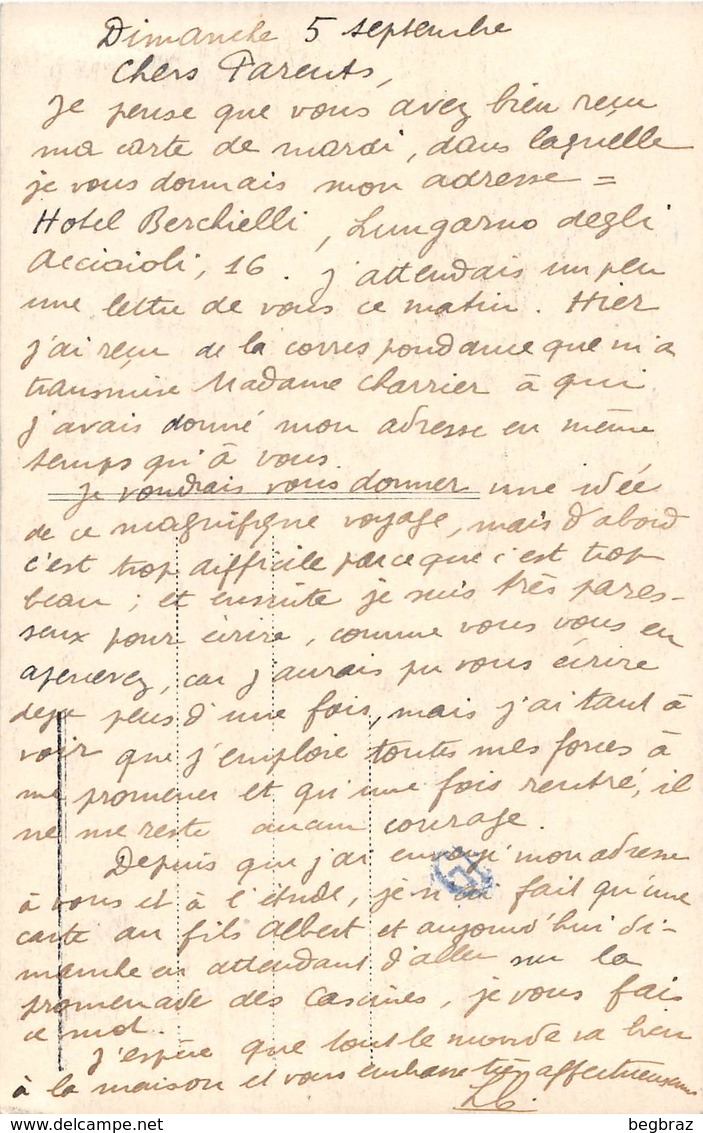 Dimanche 5 septembre
Chers Parents,
Je pense que vous avez bien reçu
ma carte de mardi, dans laquelle
je vous donnais mon adresse =
Hotel Berchielli, Lungarno degli
Acciaioli, 16. J'attendais un peu
une lettre de vous ce matin. Hier
j'ai reçu de la correspondance que m'a
transmise Madame Charrier à qui
j'avais donné mon adresse en même
temps qu'à vous.
Je voudrais vous donner une idée
de ce magnifique voyage, mais d'abord
c'est trop difficile parce que c'est trop
beau ; et ensuite je suis très pares-
seux pour écrire, comme vous vous en
apercevez, car j'aurais pu vous écrire
déjà plus d'une fois, mais j'ai tant à
voir que j'emploie toutes mes forces à
me promener et qu'une fois rentré, il
ne me reste aucun courage.
Depuis que j'ai envoyé mon adresse
à vous et à l'étude, je n'ai fait qu'une
carte au fils Albert et aujourd'hui di-
manche en attendant d'aller sur la
promenade des Cascines, je vous fais
ce mot.
J'espère que tout le monde va bien
à la maison et vous embrasse très affectueusement
begbraz